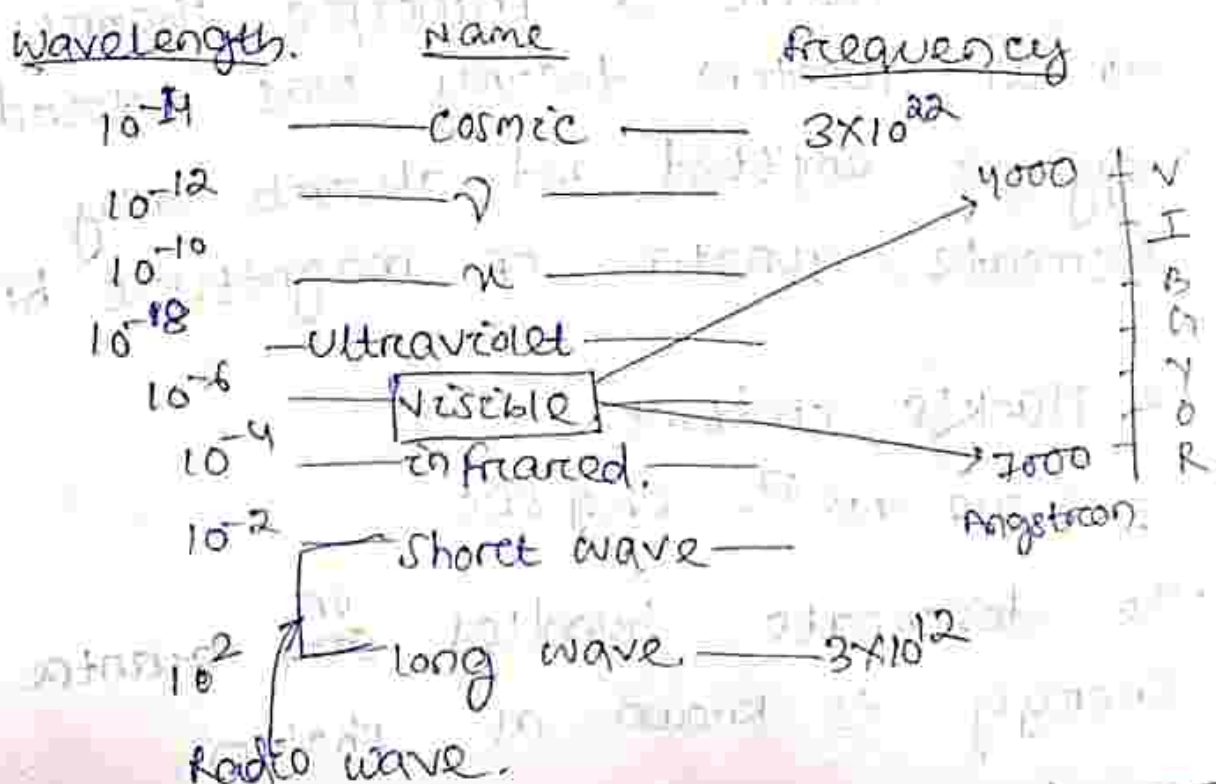 Wavelength. Name frequency
10^-14 cosmic 3×10^22
10^-12 γ
10^-10 x
10^-18 Ultraviolet
10^-6 Visible
10^-4 infrared.
10^-2 Short wave
10^2 long wave. 3×10^12
Radio wave.
4000 V
I
B
G
Y
O
7000 R
Angstrom.